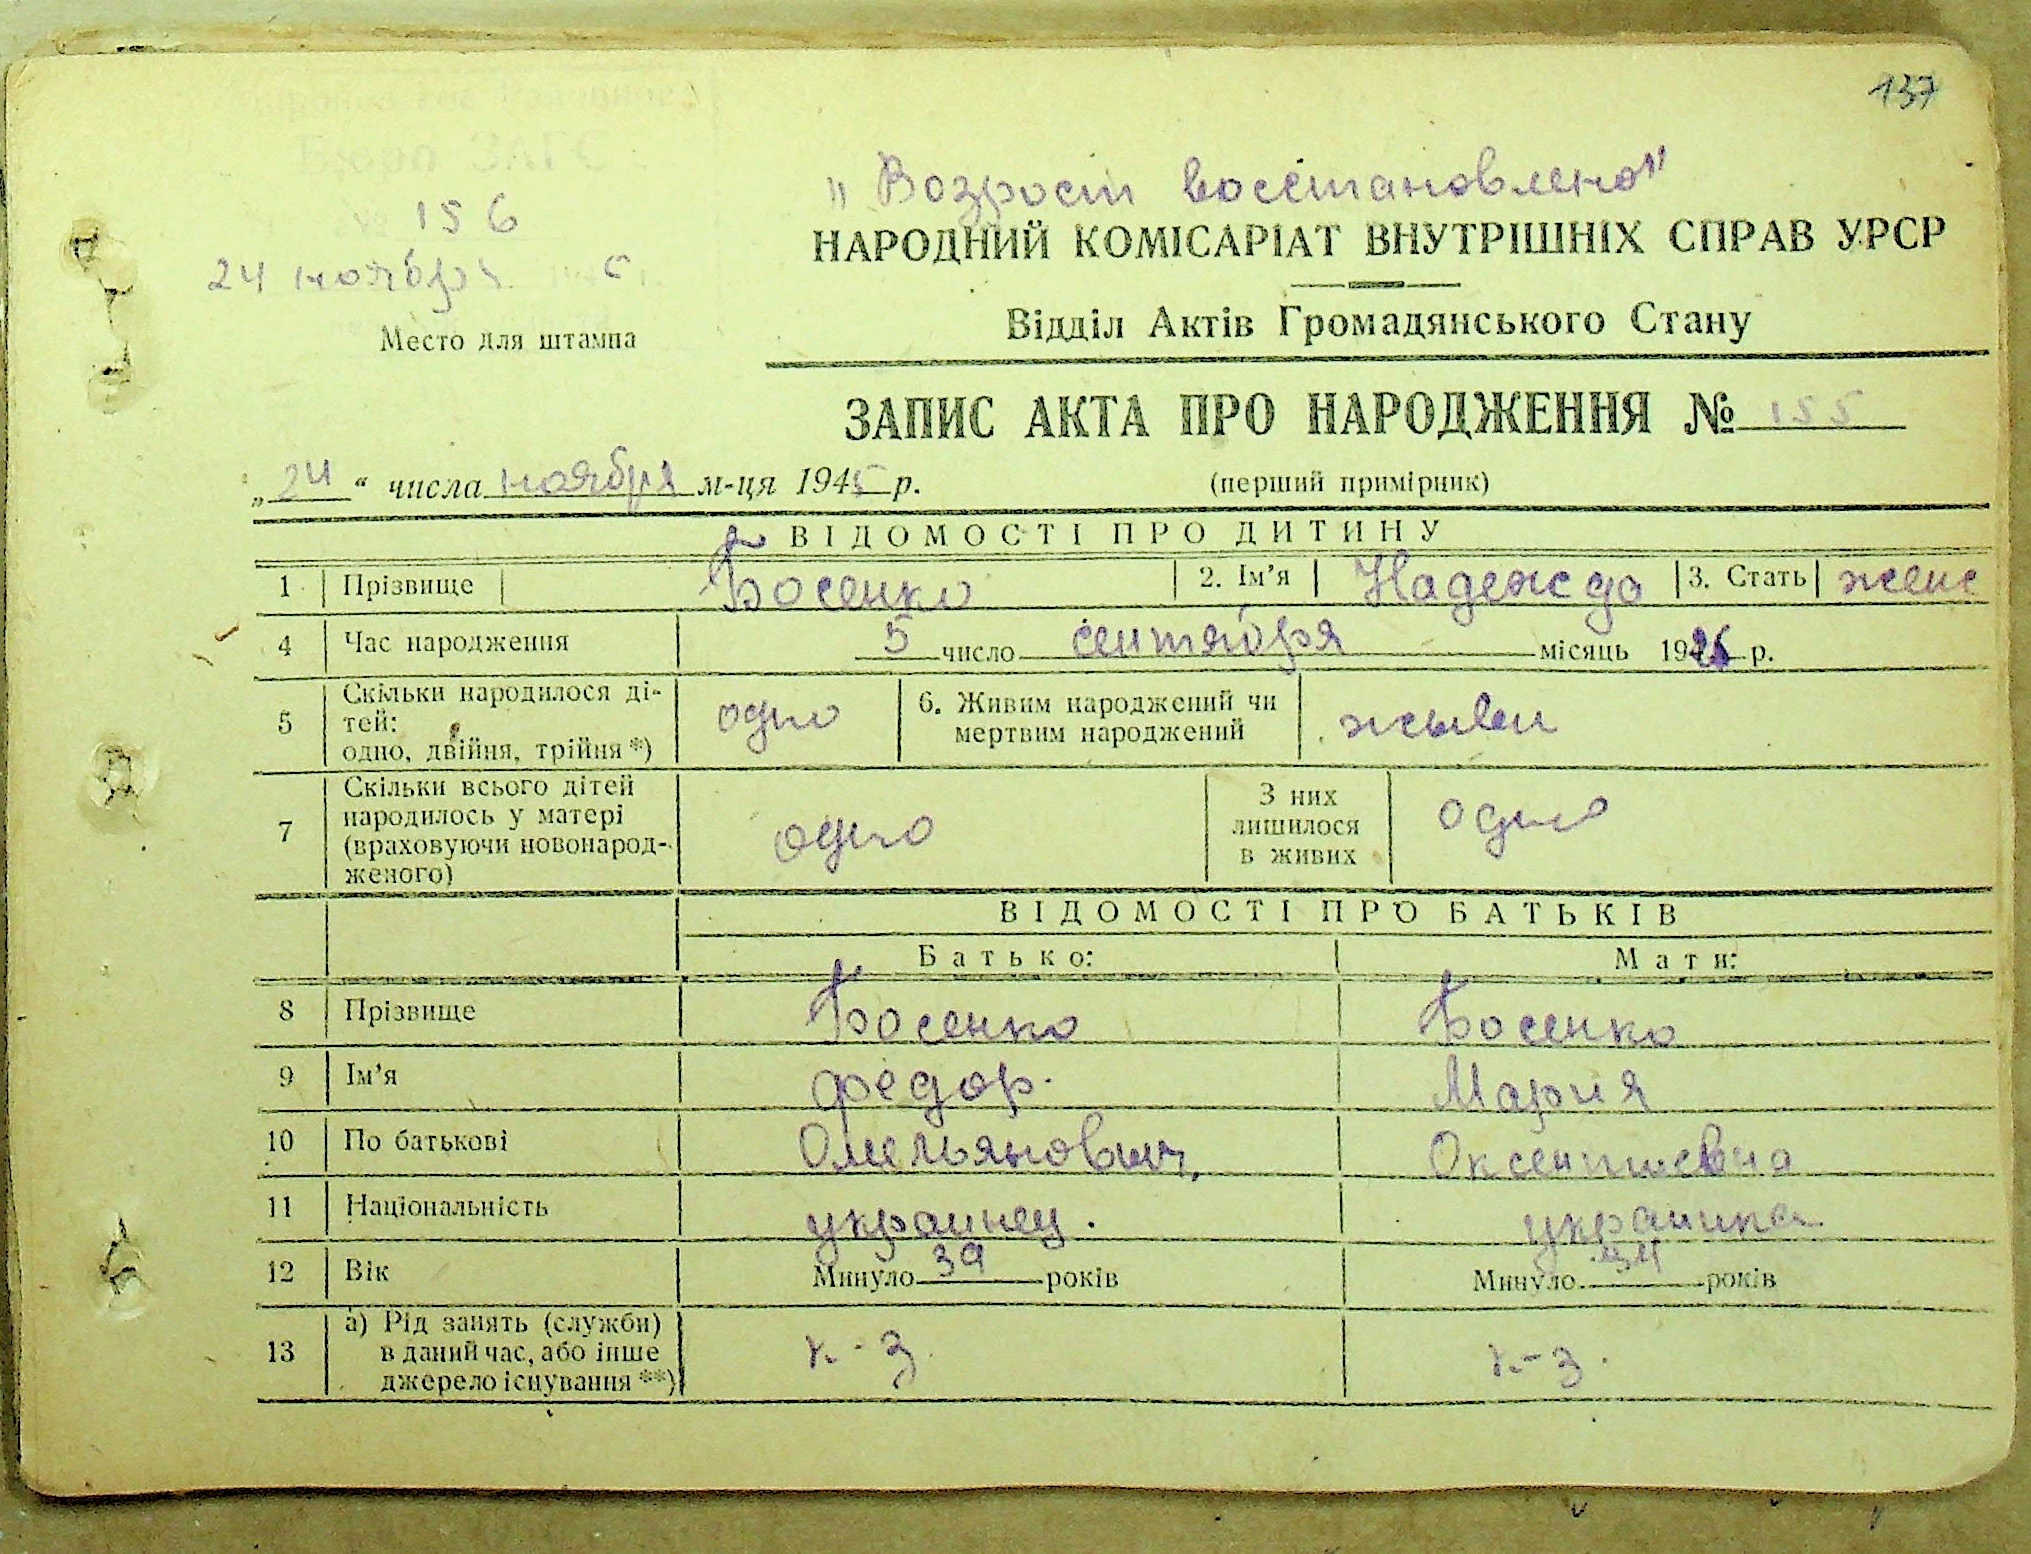 137
„Возрост восстановлено"
156
24 ноября 5
Место для штампа
НАРОДНИЙ КОМІСАРІАТ ВНУТРІШНІХ СПРАВ УРСР
Відділ Актів Громадянського Стану
ЗАПИС АКТА ПРО НАРОДЖЕННЯ № 155
„24" числа ноября м-ця 1945 р. (перший примірник)
ВІДОМОСТІ ПРО ДИТИНУ
1 Прізвище Босенко 2. Ім'я Надежда 3. Стать женс
4 Час народження 5 число сентября місяць 1926 р.
5 Скільки народилося ді-
тей:
одно, двійня, трійня *) одно 6. Живим народжений чи
мертвим народжений живы
7 Скільки всього дітей
народилось у матері
(враховуючи новонарод-
женого) одно З них
лишилося
в живих одно
ВІДОМОСТІ ПРО БАТЬКІВ
Батько: Мати:
8 Прізвище Босенко Босенко
9 Ім'я Федор. Мария
10 По батькові Омельянович Оксентиевна
11 Національність украинец. украинка
12 Вік Минуло 39 років Минуло 34 років
13 а) Рід занять (служби)
в даний час, або інше
джерело існування **) к-з. к-з.